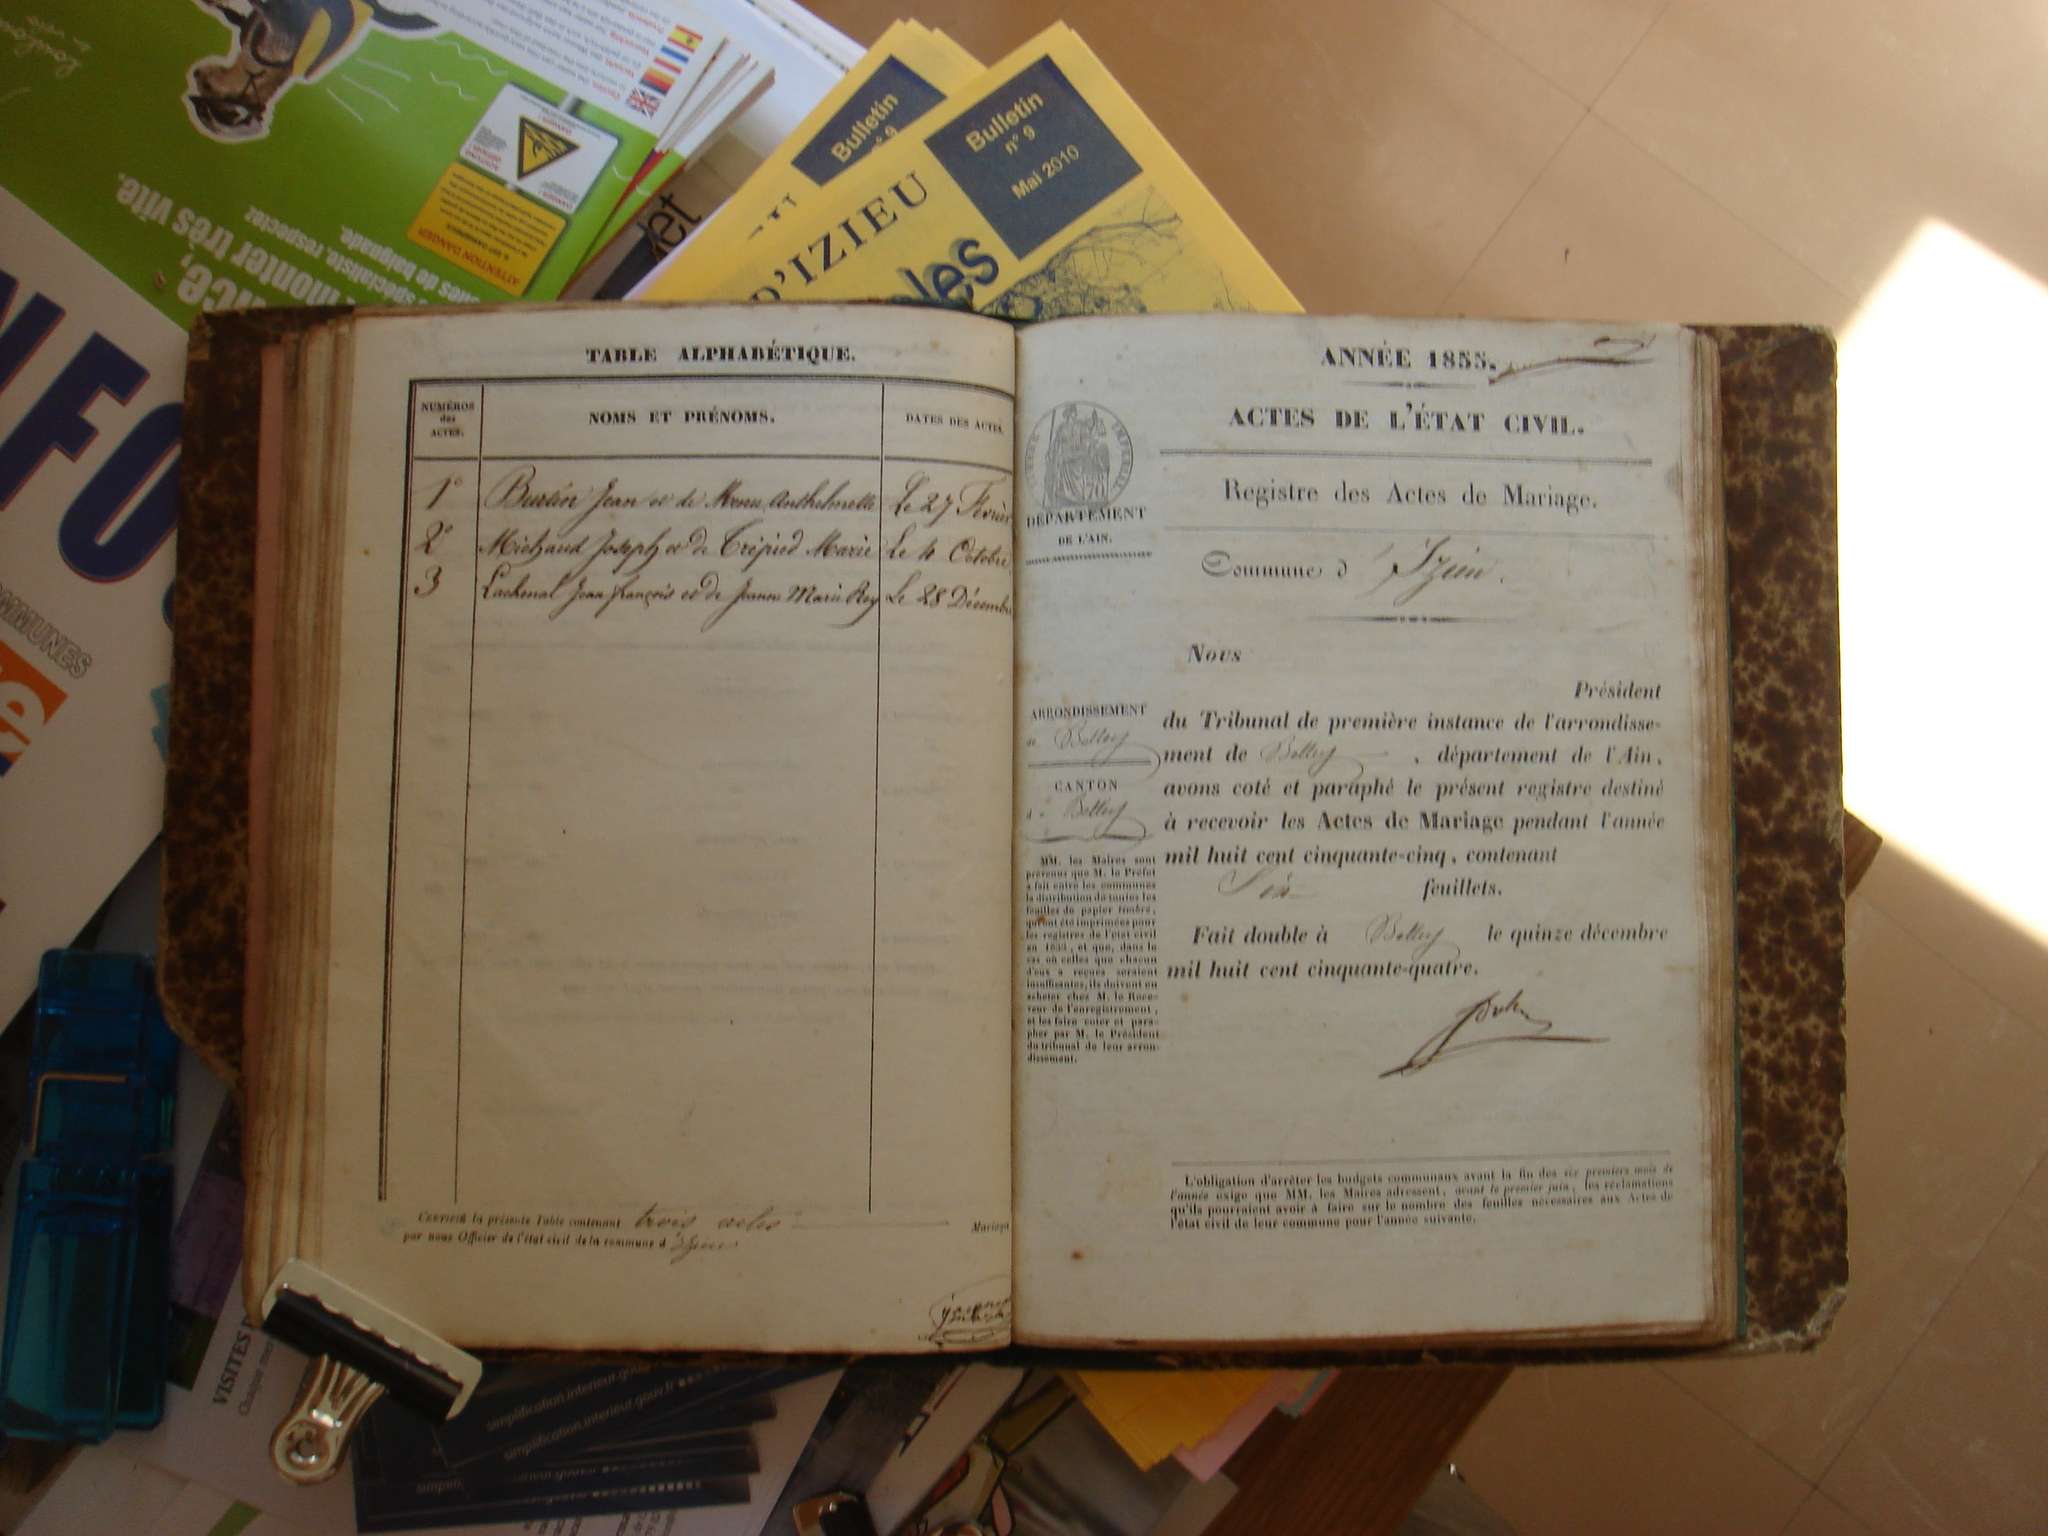 TABLE ALPHABÉTIQUE.
NUMÉROS
des
ACTES.
NOMS ET PRÉNOMS.
DATES DES ACTES.
1° Burtin Jean et de Anthelmette Le 27 Février
2° Michaud Joseph et de Tripied Marie Le 4 Octobre
3 Lachenal Jean françois et de Jeanne Marie Rey Le 28 Décembre
CERTIFIÉ la présente Table contenant trois actes Mariage
par nous Officier de l'état civil de la commune d'Izieu
ANNÉE 1855.
ACTES DE L'ÉTAT CIVIL.
Registre des Actes de Mariage.
DÉPARTEMENT
DE L'AIN.
Commune d'Izieu.
Nous
Président
du Tribunal de première instance de l'arrondisse-
ment de Belley, département de l'Ain,
avons coté et paraphé le présent registre destiné
à recevoir les Actes de Mariage pendant l'année
mil huit cent cinquante-cinq, contenant
Six feuillets.
Fait double à Belley le quinze décembre
mil huit cent cinquante-quatre.
ARRONDISSEMENT
de Belley
CANTON
de Belley
MM. les Maires sont
prévenus que M. le Préfet
a fait entre les communes
la distribution de toutes les
feuilles de papier timbré,
qui ont été imprimées pour
les registres de l'état civil
en 1855, et que, dans le
cas où celles que chacun
d'eux a reçues seraient
insuffisantes, ils doivent en
acheter chez M. le Rece-
veur de l'enregistrement,
et les faire coter et para-
pher par M. le Président
du tribunal de leur arron-
dissement.
L'obligation d'arrêter les budgets communaux avant la fin des six premiers mois de
l'année exige que MM. les Maires adressent, avant le premier juin, les réclamations
qu'ils pourraient avoir à faire sur le nombre des feuilles nécessaires aux Actes de
l'état civil de leur commune pour l'année suivante.
Bulletin
n° 9
Bulletin
n° 9
Mai 2010
D'IZIEU
les
monter très vite.
ATTENTION DANGER
NFO
MMUNES
VISITES
simplification.interieur.gouv.fr
simplification.interieur.gouv.fr